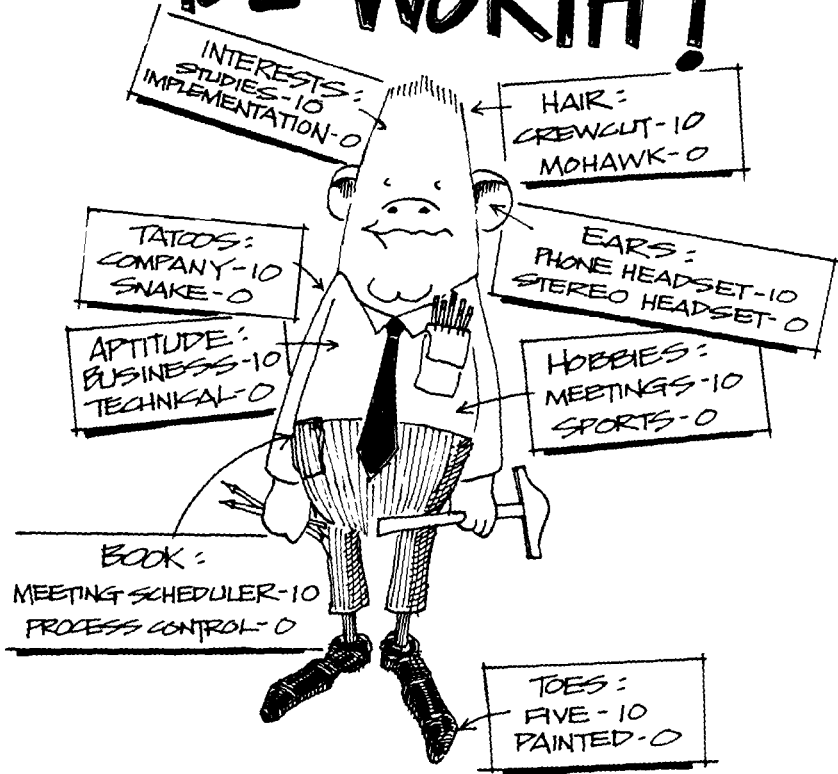 WORTH!
INTERESTS:
STUDIES-10
IMPLEMENTATION-0
HAIR:
CREWCUT-10
MOHAWK-0
TATOOS:
COMPANY-10
SNAKE-0
EARS:
PHONE HEADSET-10
STEREO HEADSET-0
APTITUDE:
BUSINESS-10
TECHNICAL-0
HOBBIES:
MEETINGS-10
SPORTS-0
BOOK:
MEETING SCHEDULER-10
PROCESS CONTROL-0
TOES:
FIVE-10
PAINTED-0